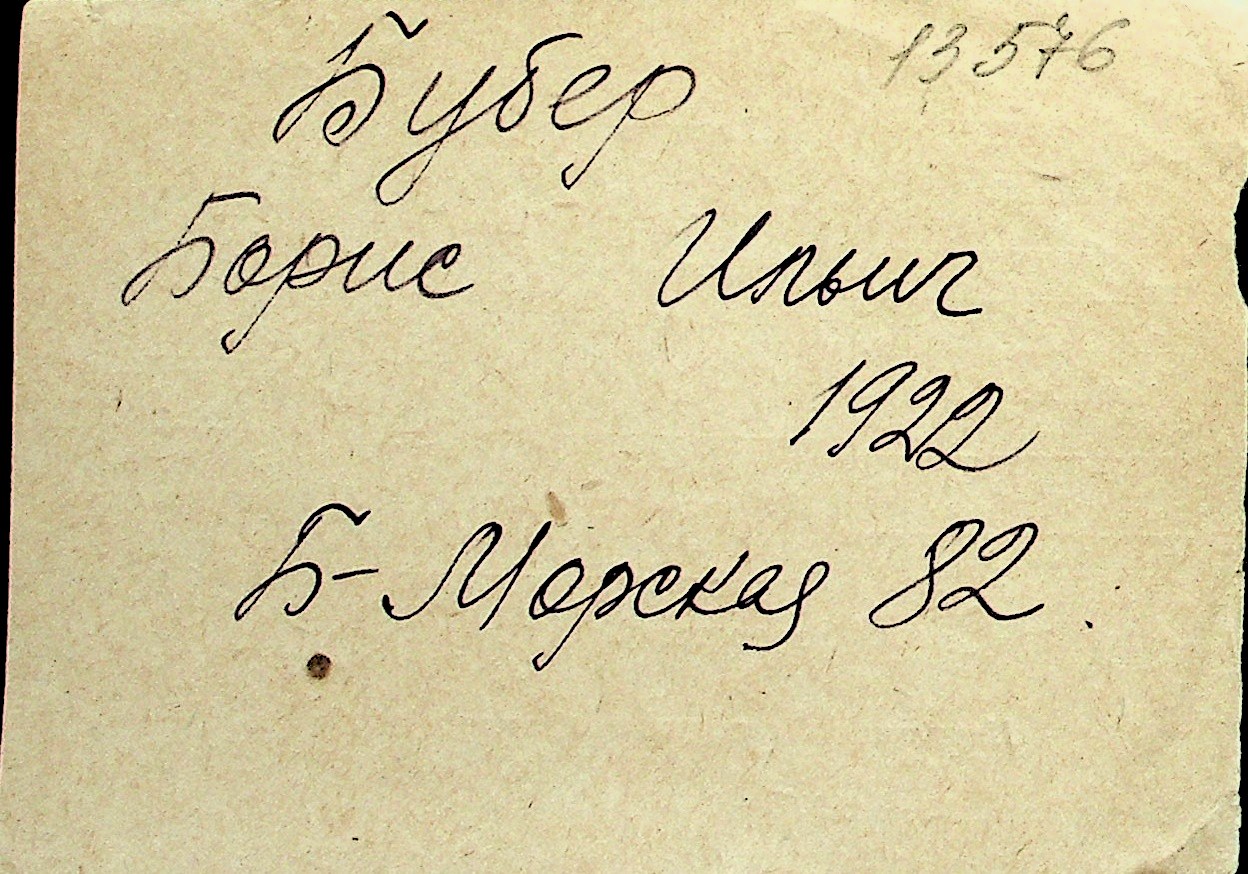 13576
Бубер
Борис Ильич
1922
Б-Морская 82.